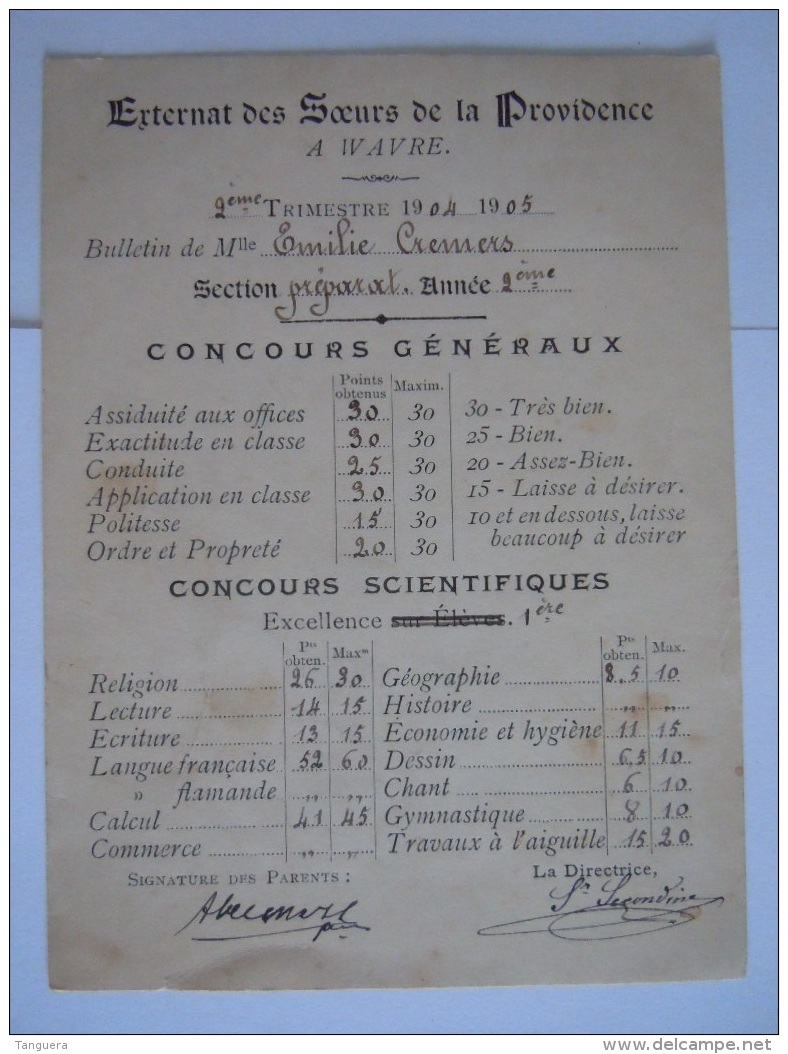 Externat des Sœurs de la Providence
A WAVRE.
2ème TRIMESTRE 1904 1905
Bulletin de Mlle Emilie Cremers
Section préparat. Année 2ème
CONCOURS GÉNÉRAUX
Points obtenus Maxim.
Assiduité aux offices 30 30 30 - Très bien.
Exactitude en classe 30 30 25 - Bien.
Conduite 25 30 20 - Assez-Bien.
Application en classe 30 30 15 - Laisse à désirer.
Politesse 15 30 10 et en dessous, laisse
Ordre et Propreté 20 30 beaucoup à désirer
CONCOURS SCIENTIFIQUES
Excellence sur Élèves. 1ère
Pts obten. Maxm Pts obten. Max.
Religion 26 30 Géographie 8.5 10
Lecture 14 15 Histoire „ „
Ecriture 13 15 Économie et hygiène 11 15
Langue française 52 60 Dessin 6,5 10
» flamande „ „ Chant 6 10
Calcul 41 45 Gymnastique 8 10
Commerce „ „ Travaux à l'aiguille 15 20
SIGNATURE DES PARENTS : La Directrice,
Sr Secondine
Tanguera
delcampe.net